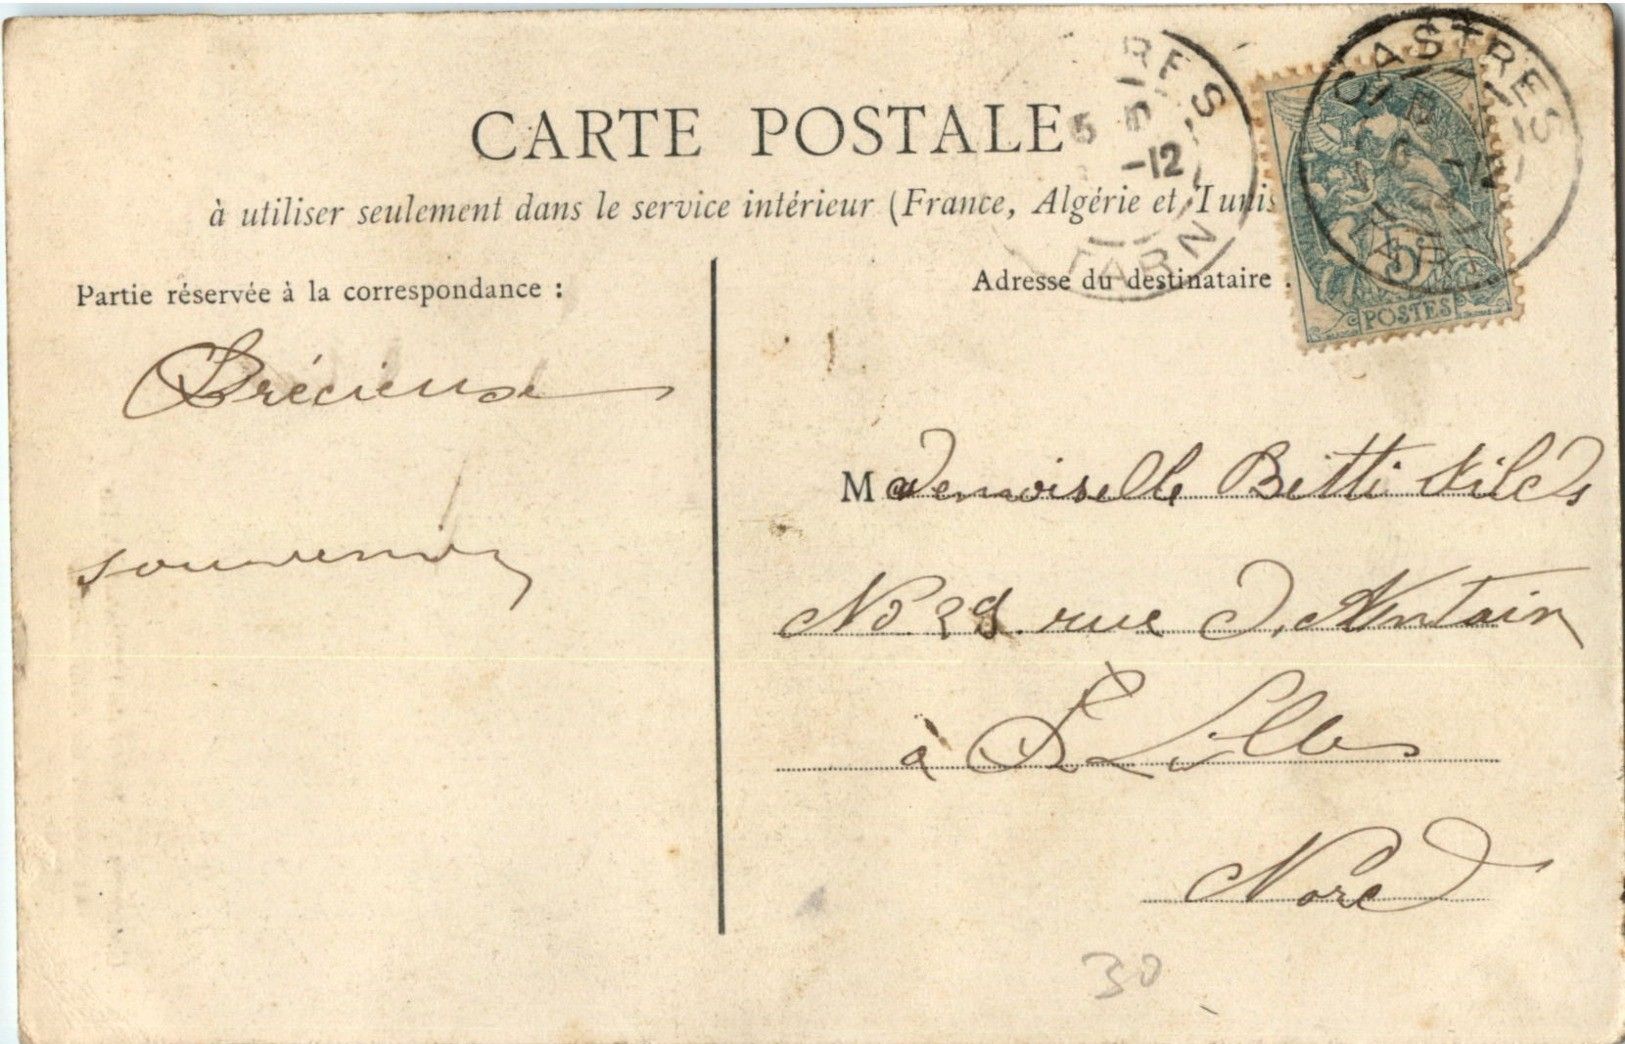 CARTE POSTALE
à utiliser seulement dans le service intérieur (France, Algérie et Tunis
Partie réservée à la correspondance :
Adresse du destinataire
CASTRES
TARN
RES
5
-12
TARN
5
POSTES
Précieuse
souvenir
Mademoiselle Betti
No. 29. rue d'Antain
à Lille
Nord
30